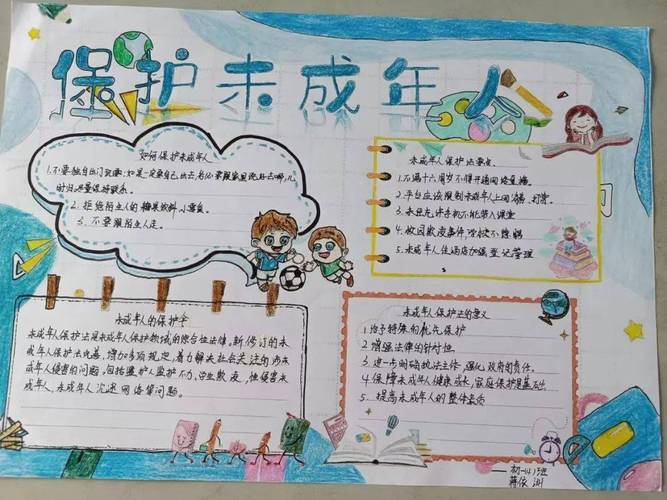 保护未成年人
如何保护未成年人
1.不要独自出门玩耍;如是一定要自己出去,务必要跟家里说好去哪儿,
时间,尽量保持联系。
2.拒绝陌生人的糖果饮料,小零食。
3.不要跟陌生人走。
未成年人保护法要点
1.不满十六周岁不得开通网络直播。
2.平台应该限制未成年人上网消费、打赏。
3.未经允许手机不能带入课堂
4.校园欺凌事件,学校不隐瞒
5.未成年人住酒店加强登记管理
未成年人的保护伞
未成年人保护法是未成年人保护领域的综合性法律,新修订的未
成年人保护法完善、增加多项规定,着力解决社会关注的涉未
成年人侵害的问题,包括监护人监护不力,学生欺凌,性侵害未
成年人,未成年人沉迷网络等问题。
未成年人保护法的意义
1、给予特殊的优先保护
2、增强法律的针对性
3、进一步明确执法主体,强化政府的责任。
4、保障未成年人健康成长,家庭保护是基础
5、提高未成年人的整体素质
初一(4)班
蒋依